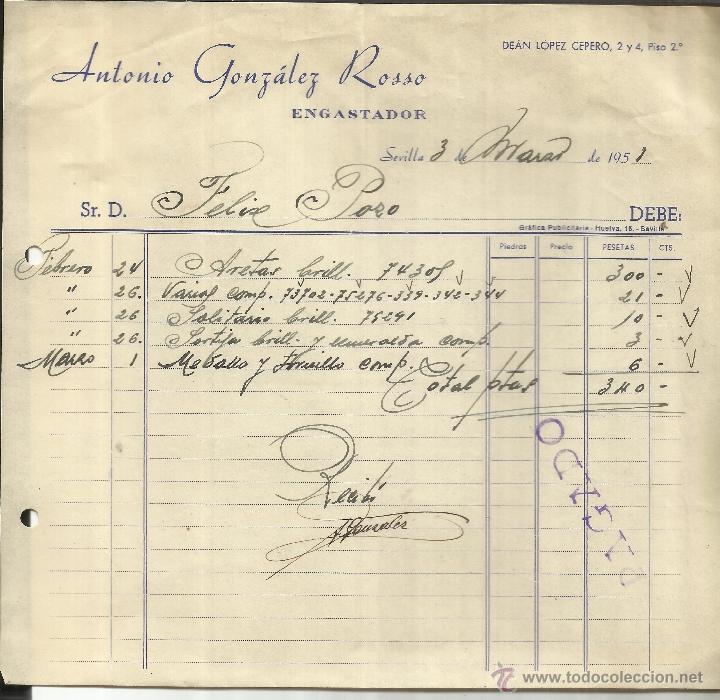 DEÁN LÓPEZ CEPERO, 2 y 4, Piso 2.º
Antonio González Rosso
ENGASTADOR
Sevilla 3 de Marzo de 1951
Sr. D. Felix Pozo DEBE:
Gráfica Publicitaria.-Huelva, 16.-Sevilla
Piedras Precio PESETAS CTS.
Febrero 24 Aretas brill. 74305 300 -
" 26. Varios comp. 73702-75276-339-342-344 21 -
" 26 Solitario Brill. 75291 10 -
" 26. Sortija brill. y esmeralda comp. 3 -
Marzo 1 y comp. 6 -
Total ptas 340 -
PAGADO
Recibí
A. Gonzalez
todocoleccion
www.todocoleccion.net